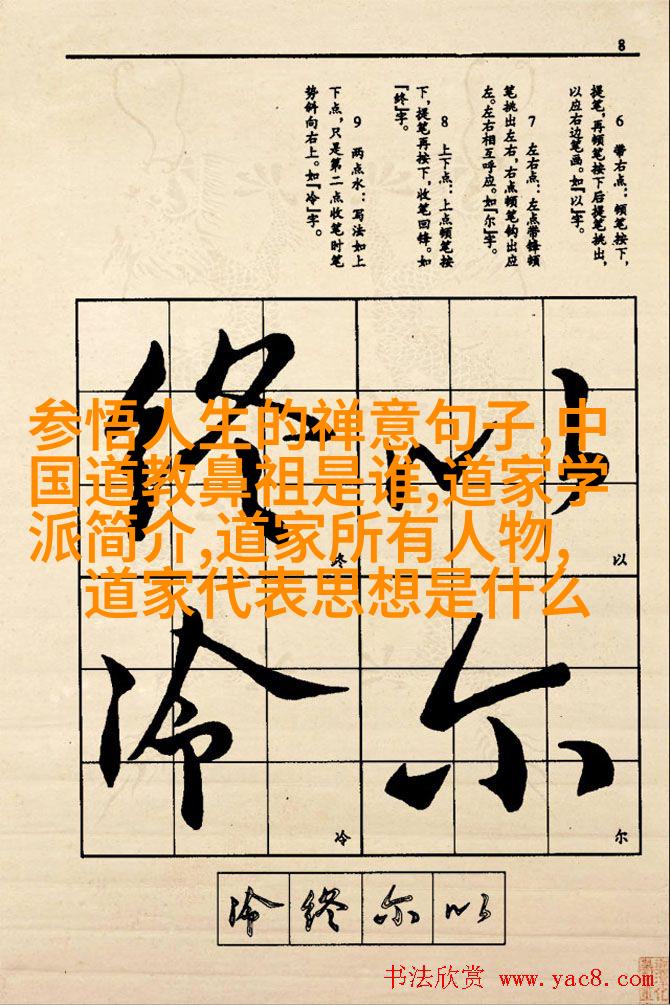 8
6 带右点：顿笔按下，
提笔，再顿笔按下后提笔挑出，
以应右边笔画。如『以』字。
7 左右点：左点带锋顿
笔挑出左右，右点顿笔钩出应
左。左右相互呼应。如『尔』字。
8 上下点：上点顿笔按
下，提笔再按下，收笔回锋。如
『终』字。
9 两点水：写法如上
下点，只是第二点收笔时笔
势斜向右上。如『冷』字。
参悟人生的禅意句子,中
国道教鼻祖是谁,道家学
派简介,道家所有人物,
道家代表思想是什么
终 以
终 以
冷 尔
冷 尔
冷 终 尔 以
书法欣赏 www.yac8.com